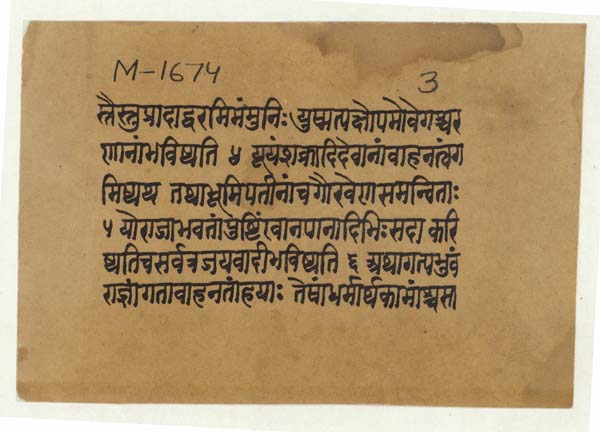 M-1674
3
स्तैस्तु प्रादाद्वरमिमंमुनिः युष्मत्पक्षोपमोवेगश्चर
णानांभविष्यति ४ यूयंशक्रादिदेवानांवाहनत्वंग
मिष्यथ तथाभूमिपतीनांचगौरवेणसमन्विताः
५ योराजाभवतांपुष्टिंखानपानादिभिःसदा करि
ष्यतिचसर्वत्रजयवादीभविष्यति ६ अथागत्यभुवं
राज्ञांगतावाहनतांहयाः तेषांधर्मार्थकामांश्चसा